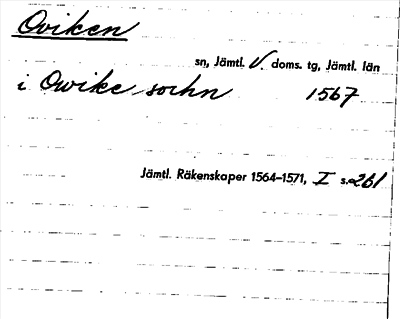 Oviken
sn, Jämtl. V. doms. tg, Jämtl. län
i Owike sochn 1567
Jämtl. Räkenskaper 1564-1571, I s. 261